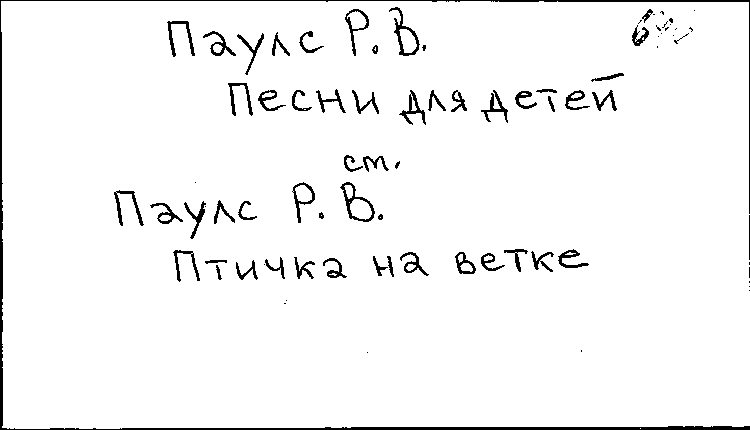 Паулс Р. В.
Песни для детей
ст.
Паулс Р. В.
Птичка на ветке